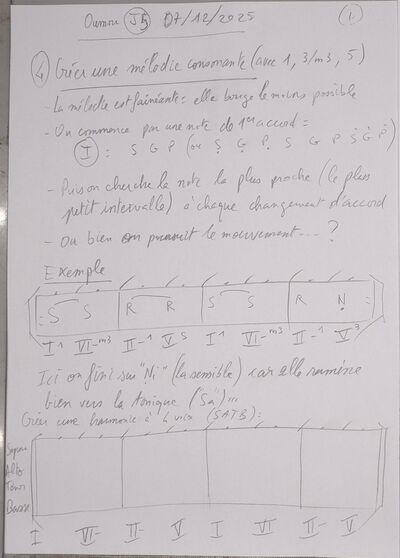 Oumou J5 07/12/2025 1.
4 Créer une mélodie consonante (avec 1, 3/m3, 5)
- La mélodie est fainéante: elle bouge le moins possible
- On commence par une note de 1er accord:
I : S G P (ou Ṣ G̣ P̣ S G P Ṡ Ġ Ṗ)
- Puis on cherche la note la plus proche (le plus
petit intervalle) à chaque changement d'accord
- Ou bien on poursuit le mouvement....?
Exemple
S S R R S S R Ṇ
I¹ VI-ᵐ³ II-¹ V⁵ I¹ VI-ᵐ³ II-¹ V³
Ici on fini sur "Ni" (la sensible) car elle ramène
bien vers la tonique ("Sa")...
Créer une harmonie à 4 voix (SATB):
Sopran
Alto
Tenor
Basse
I VI- II- V I VI II- V